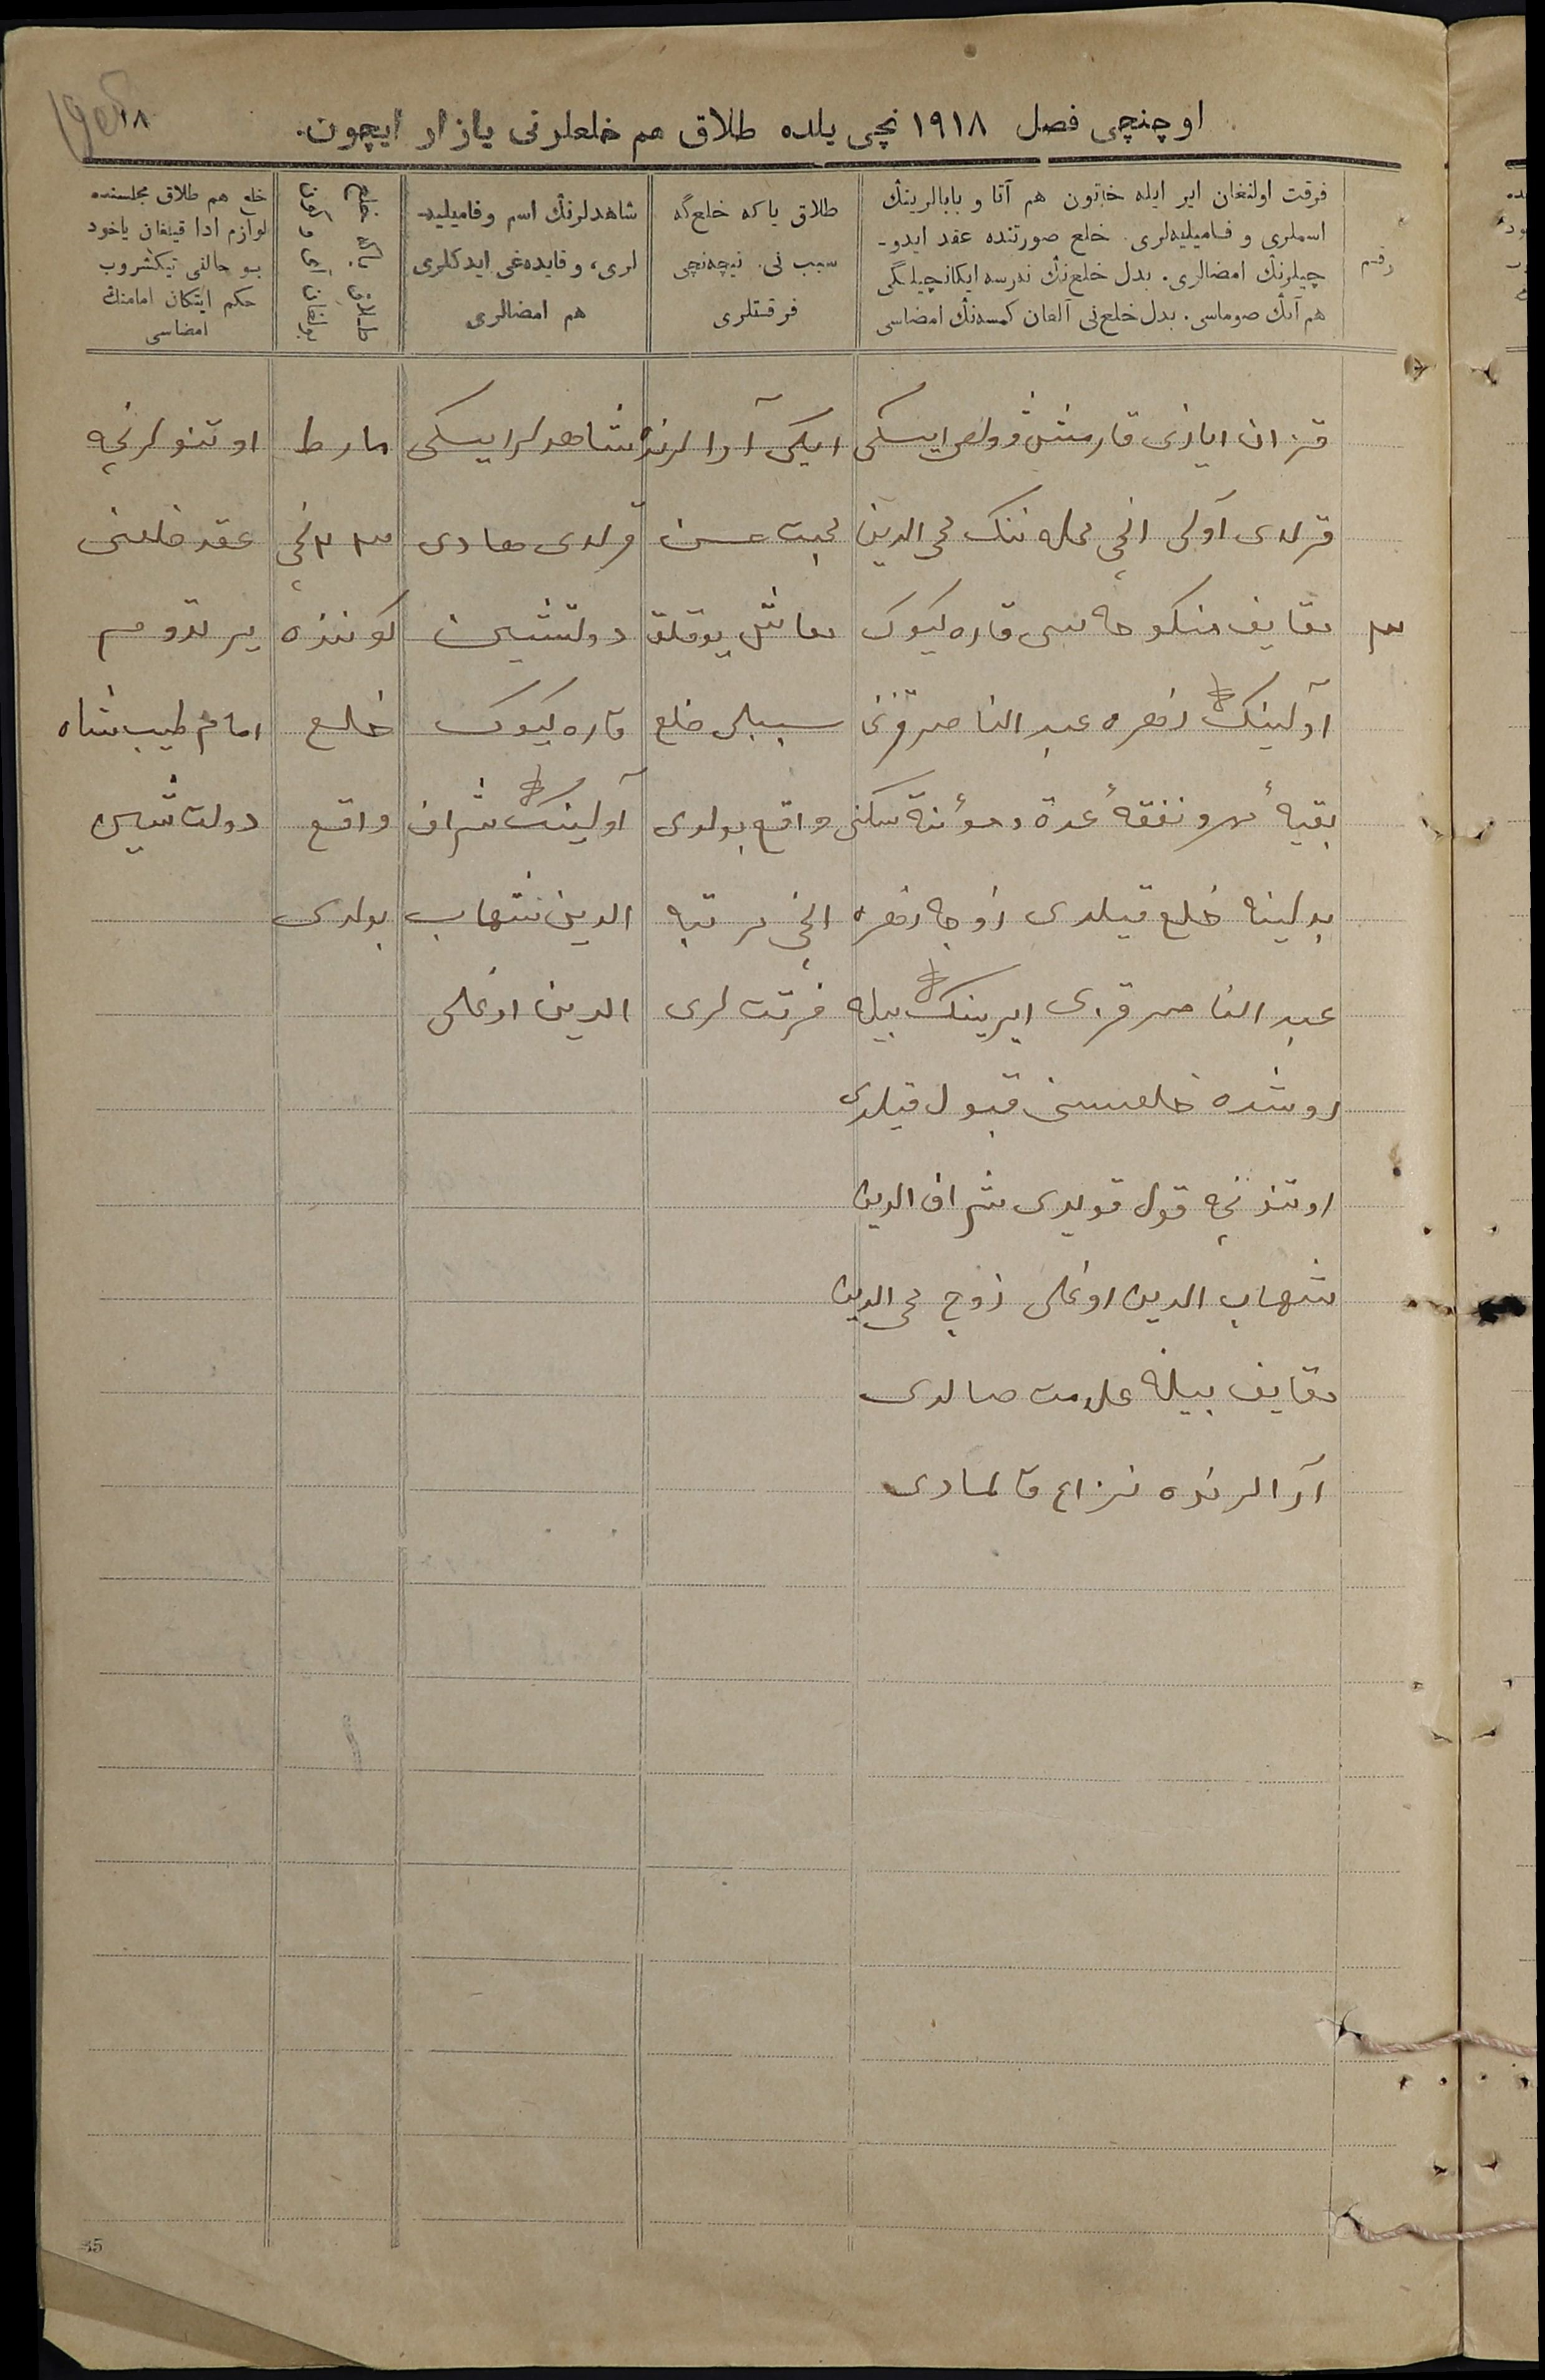 اوچنچی فصل ۱۹۱۸ نچی یلده طلاق هم خلعلرنی یازار ایچون.
۱۸
رقم
فرقت اولنغان ایر ایله خاتون هم آتا و بابالرینڭ
اسملری و فامیلیه‌لری. خلع صورتنده عقد ایدو-
چیلرنڭ امضالری. بدل خلع‌نڭ ندرسه ایکانچیلگی
هم آنڭ صوماسی. بدل خلع‌نی آلغان کمسه‌نڭ امضاسی
طلاق یا که خلع گه
سبب نی. نیچه‌نچی
فرقتلری
شاهدلرنڭ اسم و فامیلیه-
لری، و قایده‌غی ایدکلری
هم امضالری
طلاق یا که خلع
بولغان آی و کون
خلع هم طلاق مجلسنده
لوازم ادا قیلغان یاخود
بو حالنی تیکشروب
حکم ایتکان امامنڭ
امضاسی
۳
قزان ایازی قارمش وولصی ایسکی
قرلای آولی ۱نچی محله ننک محی الدین
منکوحه سی قاره کیوک
آولینک عبد الناصر قزی
بقیهٔ مهر و نفقهٔ عدة و مؤنة سکنی
بدلینه خلع قیلدی زوجه
عبد الناصر قزی ایرینک بیله
روشده خلعسنی قبول قیلدی
اوتنونچه قول قویدی شراف الدین
شهاب الدین اوغلی زوج محی الدین
بیله علامت صالدی
آرالرنده نزاع قالمادی
ایکی آرالرنده
محبت
معاش یوقلق
سببلی خلع
واقع بولدی
۱نچی مرتبه
فرقت لری
شاهدلر ایسکی
قرلای
دولتشین
قاره کیوک
آولینک شراف
الدین شهاب
الدین اوغلی
مارط
نچی
کوننده
خلع
واقع
بولدی
اوتنولرنچه
عقد خلعنی
یرتدوم
امام طیب شاه
دولت شین
35